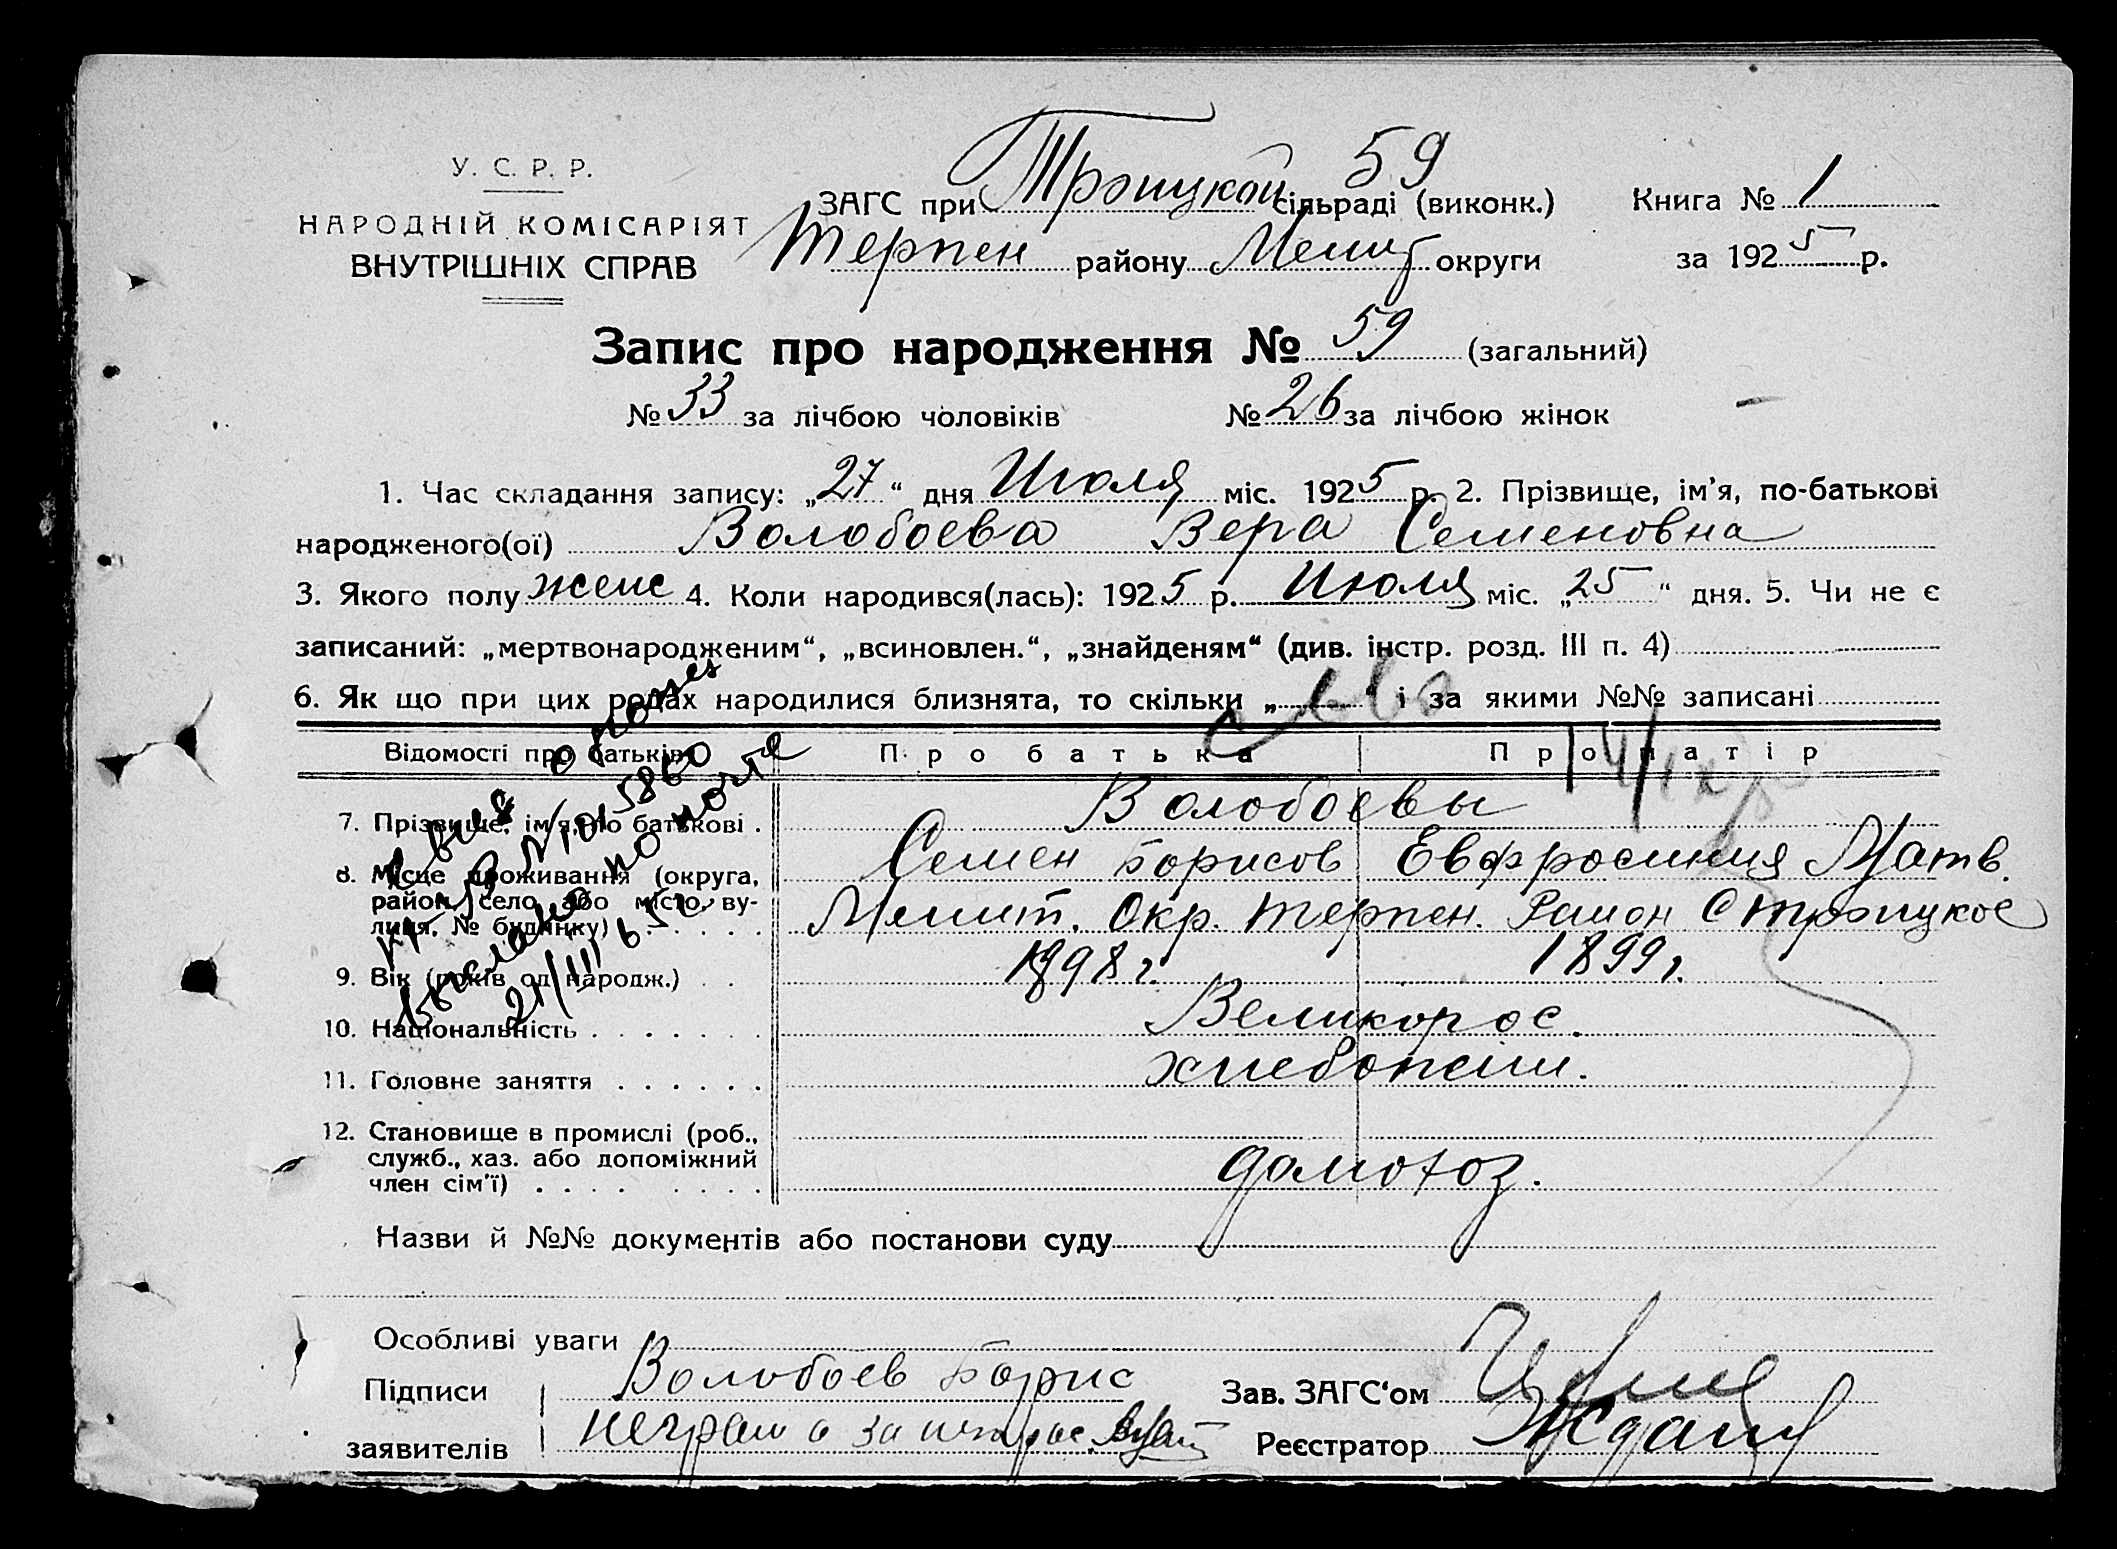 У. С. Р. Р.
НАРОДНІЙ КОМІСАРІЯТ
ВНУТРІШНІХ СПРАВ
59
ЗАГС при Троицкой сільраді (виконк.) Книга № 1
Терпен району Мелит округи за 1925 р.
Запис про народження № 59 (загальний)
№ 33 за лічбою чоловіків № 26 за лічбою жінок
1. Час складання запису: „27“ дня Июля міс. 1925 р. 2. Прізвище, ім'я, по-батькові
народженого(ої) Волобоева Вера Семеновна
3. Якого полу женс 4. Коли народився(лась): 1925 р. Июля міс. „25“ дня. 5. Чи не є
записаний: „мертвонародженим“, „всиновлен.“, „знайденям“ (див. інстр. розд. III п. 4)
6. Як що при цих родах народилися близнята, то скільки „ “ і за якими №№ записані
Відомості про батьків Про батька Про матір
7. Прізвище, ім'я, по батькові . Волобоевы
Семен Борисов Евфросиния Матв.
8. Місце проживання (округа, район, село або місто, вулиця, № будинку) Мелит. Окр. Терпен. Район С Троицкое
9. Вік (років од народж.) . . 1898 г. 1899 г.
10. Національність . . . . . . Великорос.
11. Головне заняття . . . . . . хлебопаш.
12. Становище в промислі (роб., служб., хаз. або допоміжний член сім'ї) . . . . домохоз.
выслано по почте
21/III 65 г.
Назви й №№ документів або постанови суду
Особливі уваги
Підписи Волобоев Борис Зав. ЗАГС'ом
заявителів неграм а за негорос. Реєстратор